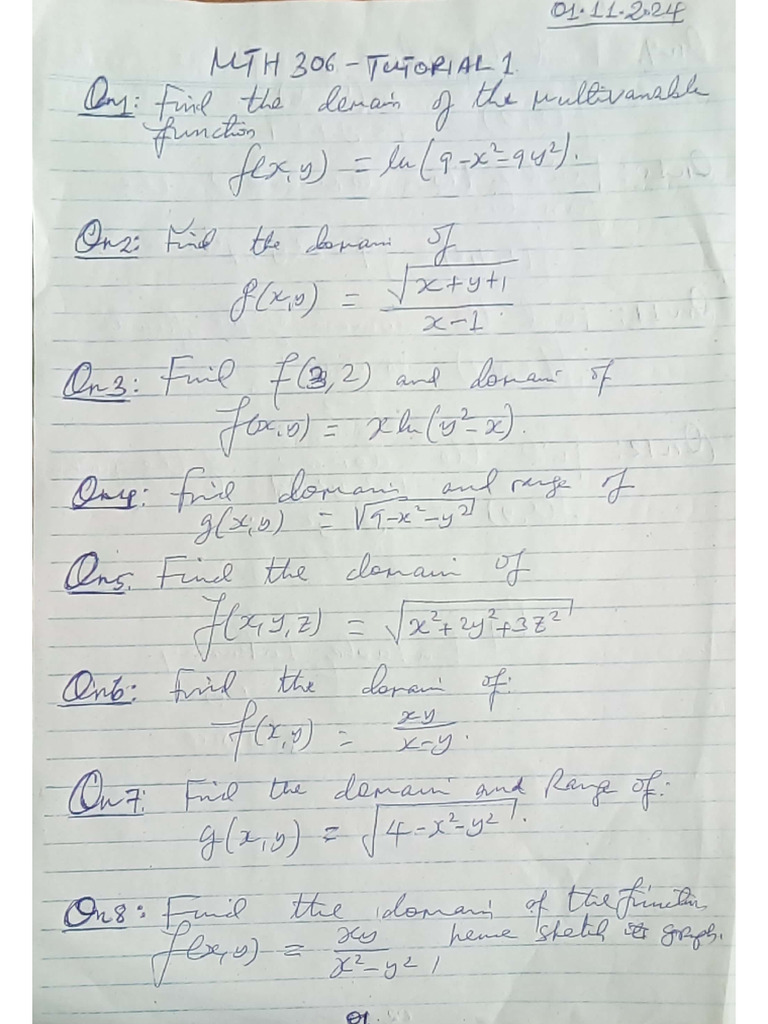 01.11.2024
MTH 306 - TUTORIAL 1
Qn1: Find the domain of the multivariable
function
f(x,y) = ln(9-x²-9y²).
Qn2: Find the domain of
f(x,y) = √(x+y+1) / (x-1)
Qn3: Find f(3,2) and domain of
f(x,y) = x ln(y²-x).
Qn4: find domain and range of
g(x,y) = √(9-x²-y²)
Qn5. Find the domain of
f(x,y,z) = √(x²+2y²+3z²)
Qn6: find the domain of:
f(x,y) = xy / (x-y).
Qn7: Find the domain and Range of:
g(x,y) = √(4-x²-y²).
Qn8: Find the domain of the function
f(x,y) = xy / (x²-y²), hence sketch graph.
01.